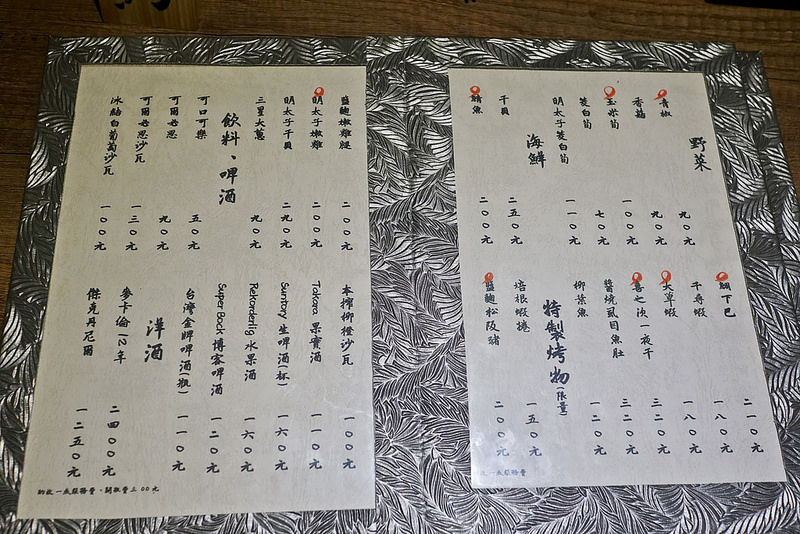 野菜
青椒 九〇元
香菇 九〇元
玉米筍 一〇〇元
茭白筍 七〇元
明太子茭白筍 一一〇元
海鮮
干貝 二五〇元
鯖魚 二〇〇元
鯛下巴 二一〇元
千尋蝦 一八〇元
大草蝦 一八〇元
喜之次一夜干 三二〇元
醬燒虱目魚肚 三二〇元
柳葉魚 一二〇元
特製烤物(限量)
培根蝦捲 一五〇元
鹽麴松阪豬 二〇〇元
一成服務費
鹽麴嫩雞腿 二〇〇元
明太子嫩雞 二〇〇元
明太子干貝 二九〇元
三星大蔥 九〇元
飲料、啤酒
可口可樂 五〇元
可爾必思 九〇元
可爾必思沙瓦 一三〇元
冰結白葡萄沙瓦 一〇〇元
本榨柳橙沙瓦 一〇〇元
Takara 果實酒 一一〇元
Suntory 生啤酒(杯) 一六〇元
Rekorderlig 水果酒 一六〇元
Super Bock 博客啤酒 一二〇元
台灣金牌啤酒(瓶) 一一〇元
洋酒
麥卡倫12年 二四〇〇元
傑克丹尼爾 一二五〇元
酌收一成服務費、開瓶費三00元